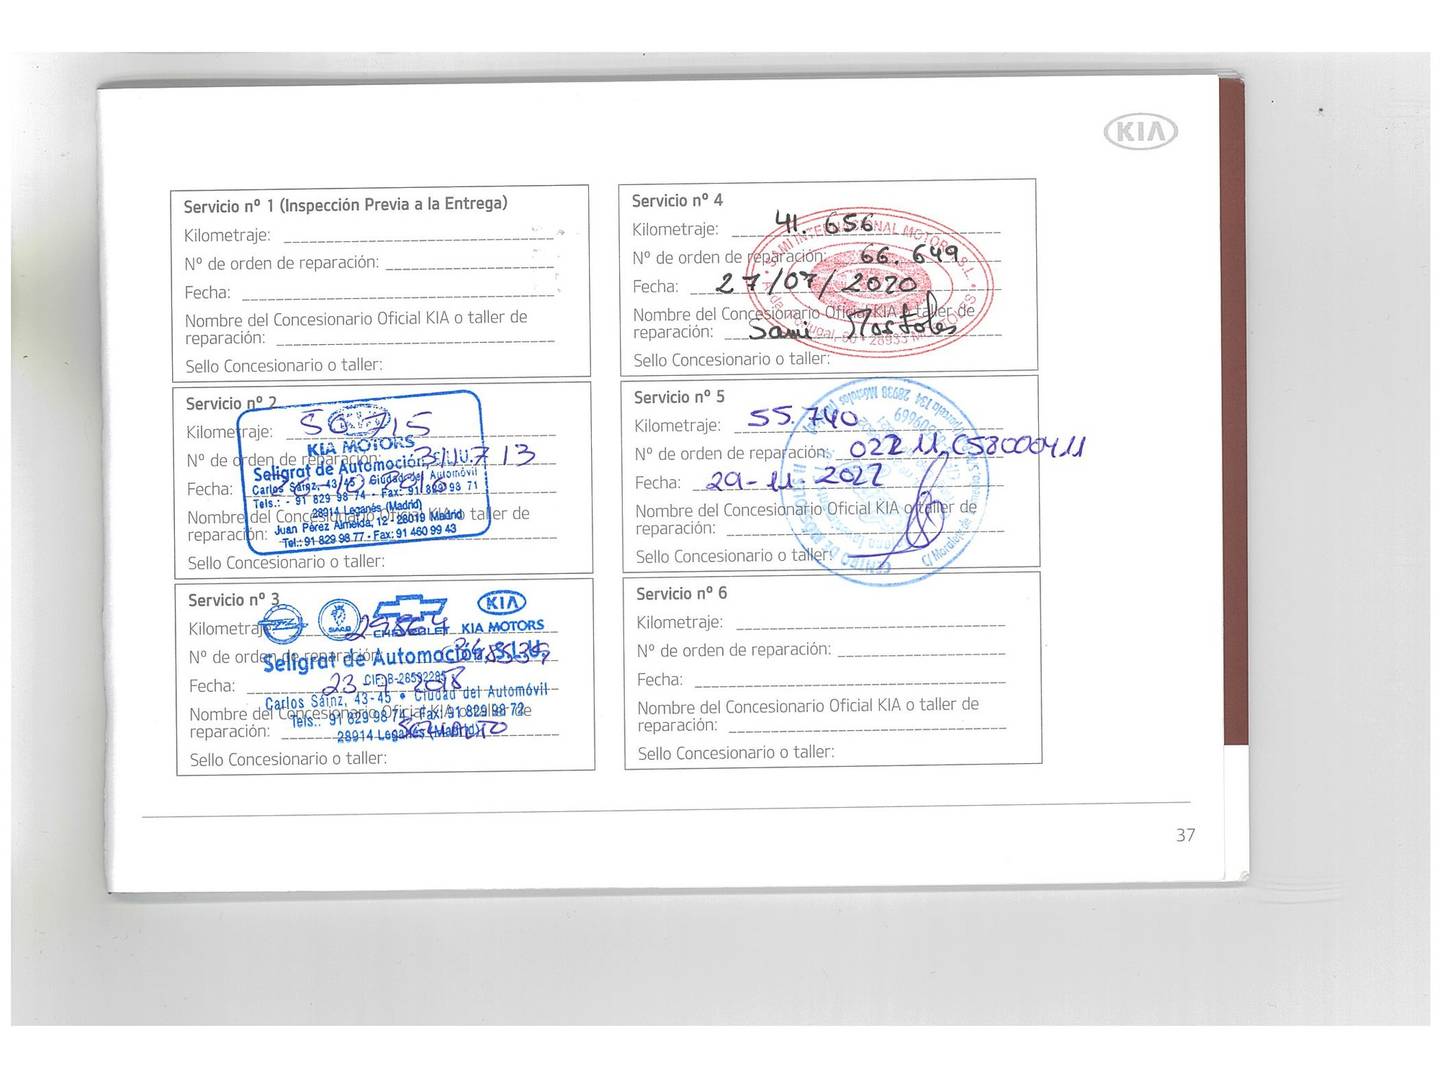 KIA
Servicio nº 1 (Inspección Previa a la Entrega)
Kilometraje:
Nº de orden de reparación:
Fecha:
Nombre del Concesionario Oficial KIA o taller de
reparación:
Sello Concesionario o taller:
Servicio nº 2
Kilometraje:
KIA MOTORS
Nº de orden de reparación:
Seligrat de Automoción, S.L.U.
Carlos Sáinz, 43-45 - Ciudad del Automóvil
Fecha:
Tels.: 91 829 98 74 - Fax: 91 829 98 71
28914 Leganés (Madrid)
Nombre del Concesionario Oficial KIA o taller de
Juan Pérez Almeida, 12 - 28019 Madrid
reparación:
Tel.: 91 829 98 77 - Fax: 91 460 99 43
Sello Concesionario o taller:
Servicio nº 3
KIA
Kilometraje:
CHEVROLET KIA MOTORS
Nº de orden de reparación:
Seligrat de Automoción, S.L.U.
CIF: B-28592285
Fecha: 23 7 2018
Carlos Sáinz, 43-45 • Ciudad del Automóvil
Nombre del Concesionario Oficial KIA o taller de
Tels.: 91 829 98 74 - Fax: 91 829 98 72
reparación:
28914 Leganés (Madrid)
Sello Concesionario o taller:
Servicio nº 4
Kilometraje: 41.656
SAMI INTERNATIONAL MOTORS S.L.
Nº de orden de reparación: 66.649
Fecha: 27/07/2020
Nombre del Concesionario Oficial KIA o taller de
reparación: Sami Mostoles
Portugal, 50 • 28933 MOSTOLES
Sello Concesionario o taller:
Servicio nº 5
Kilometraje: 55.740
Nº de orden de reparación:
Fecha: 29-11-2022
Nombre del Concesionario Oficial KIA o taller de
reparación:
Sello Concesionario o taller:
Servicio nº 6
Kilometraje:
Nº de orden de reparación:
Fecha:
Nombre del Concesionario Oficial KIA o taller de
reparación:
Sello Concesionario o taller:
37